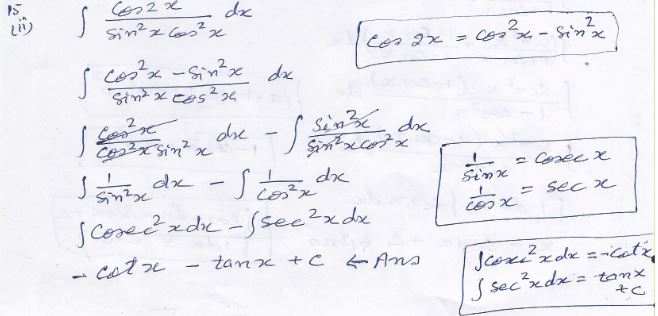 15
(ii) ∫ cos2x / sin²x cos²x dx
cos 2x = cos²x - sin²x
∫ cos²x - sin²x / sin²x cos²x dx
∫ cos²x / cos²x sin²x dx - ∫ sin²x / sin²x cos²x dx
∫ 1/sin²x dx - ∫ 1/cos²x dx
1/sinx = cosec x
1/cosx = sec x
∫cosec²x dx - ∫sec²x dx
- cotx - tanx + c ← Ans
∫cosec²x dx = -cotx
∫ sec²x dx = tanx + c